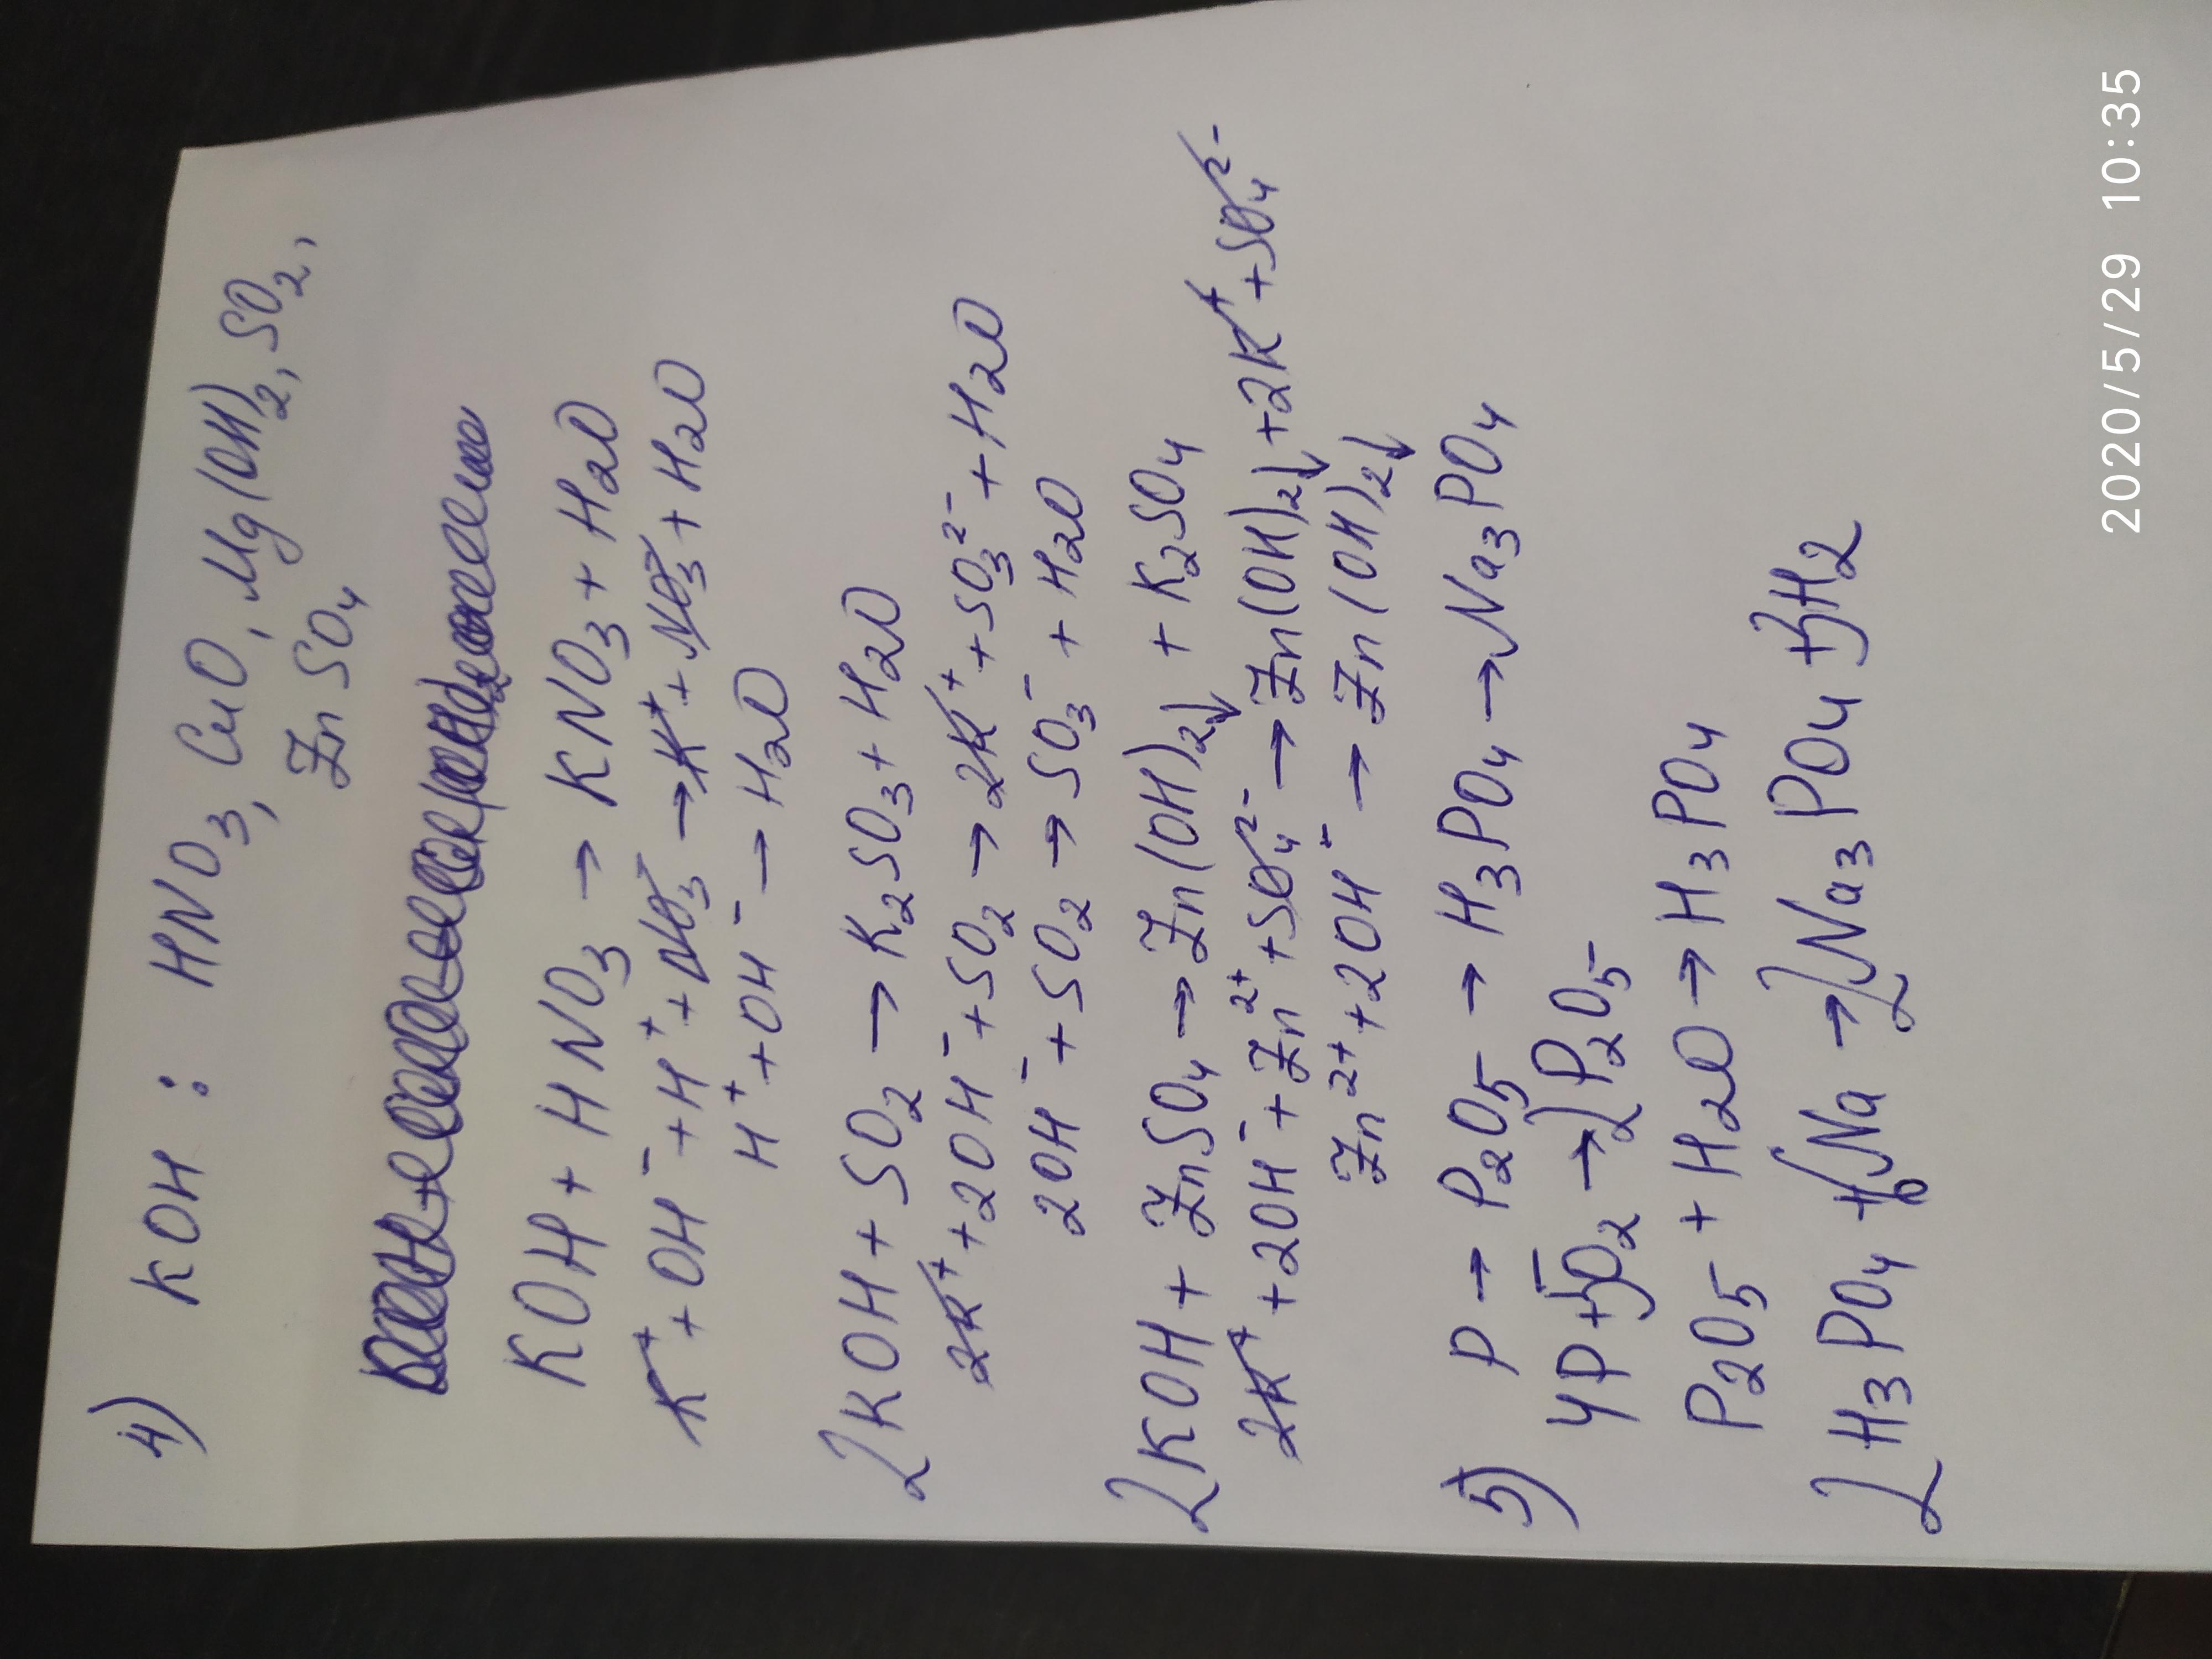 4) KOH : HNO₃, CuO, Mg(OH)₂, SO₂,
ZnSO₄
KOH + HNO₃ → KNO₃ + H₂O
K⁺ + OH⁻ + H⁺ + NO₃ → K⁺ + NO₃ + H₂O
H⁺ + OH⁻ → H₂O
2KOH + SO₂ → K₂SO₃ + H₂O
2K⁺ + 2OH⁻ + SO₂ → 2K⁺ + SO₃²⁻ + H₂O
2OH⁻ + SO₂ → SO₃⁻ + H₂O
2KOH + ZnSO₄ → Zn(OH)₂↓ + K₂SO₄
2K⁺ + 2OH⁻ + Zn²⁺ + SO₄²⁻ → Zn(OH)₂↓ + 2K⁺ + SO₄²⁻
Zn²⁺ + 2OH⁻ → Zn(OH)₂↓
5) P → P₂O₅ → H₃PO₄ → Na₃PO₄
4P + 5O₂ → 2P₂O₅
P₂O₅ + H₂O → H₃PO₄
2H₃PO₄ + 6Na → 2Na₃PO₄ + 3H₂
2020/5/29 10:35